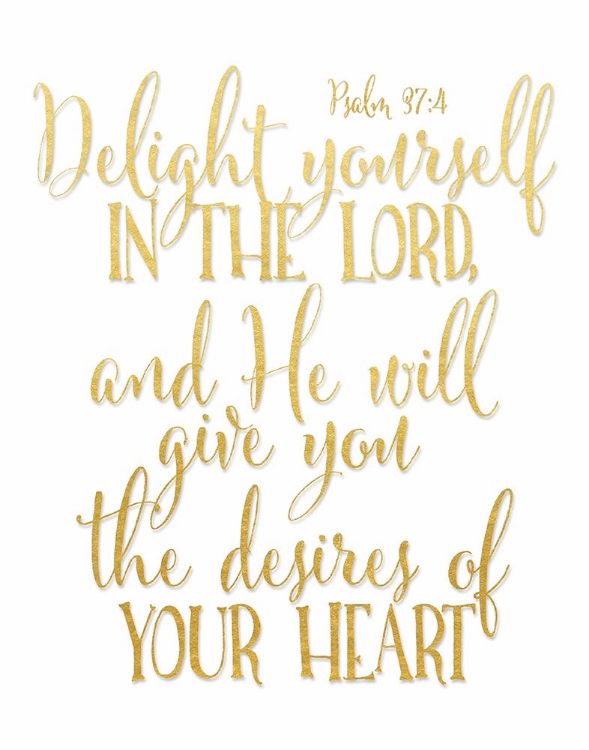 Psalm 37:4
Delight yourself
IN THE LORD,
and He will
give you
the desires of
YOUR HEART